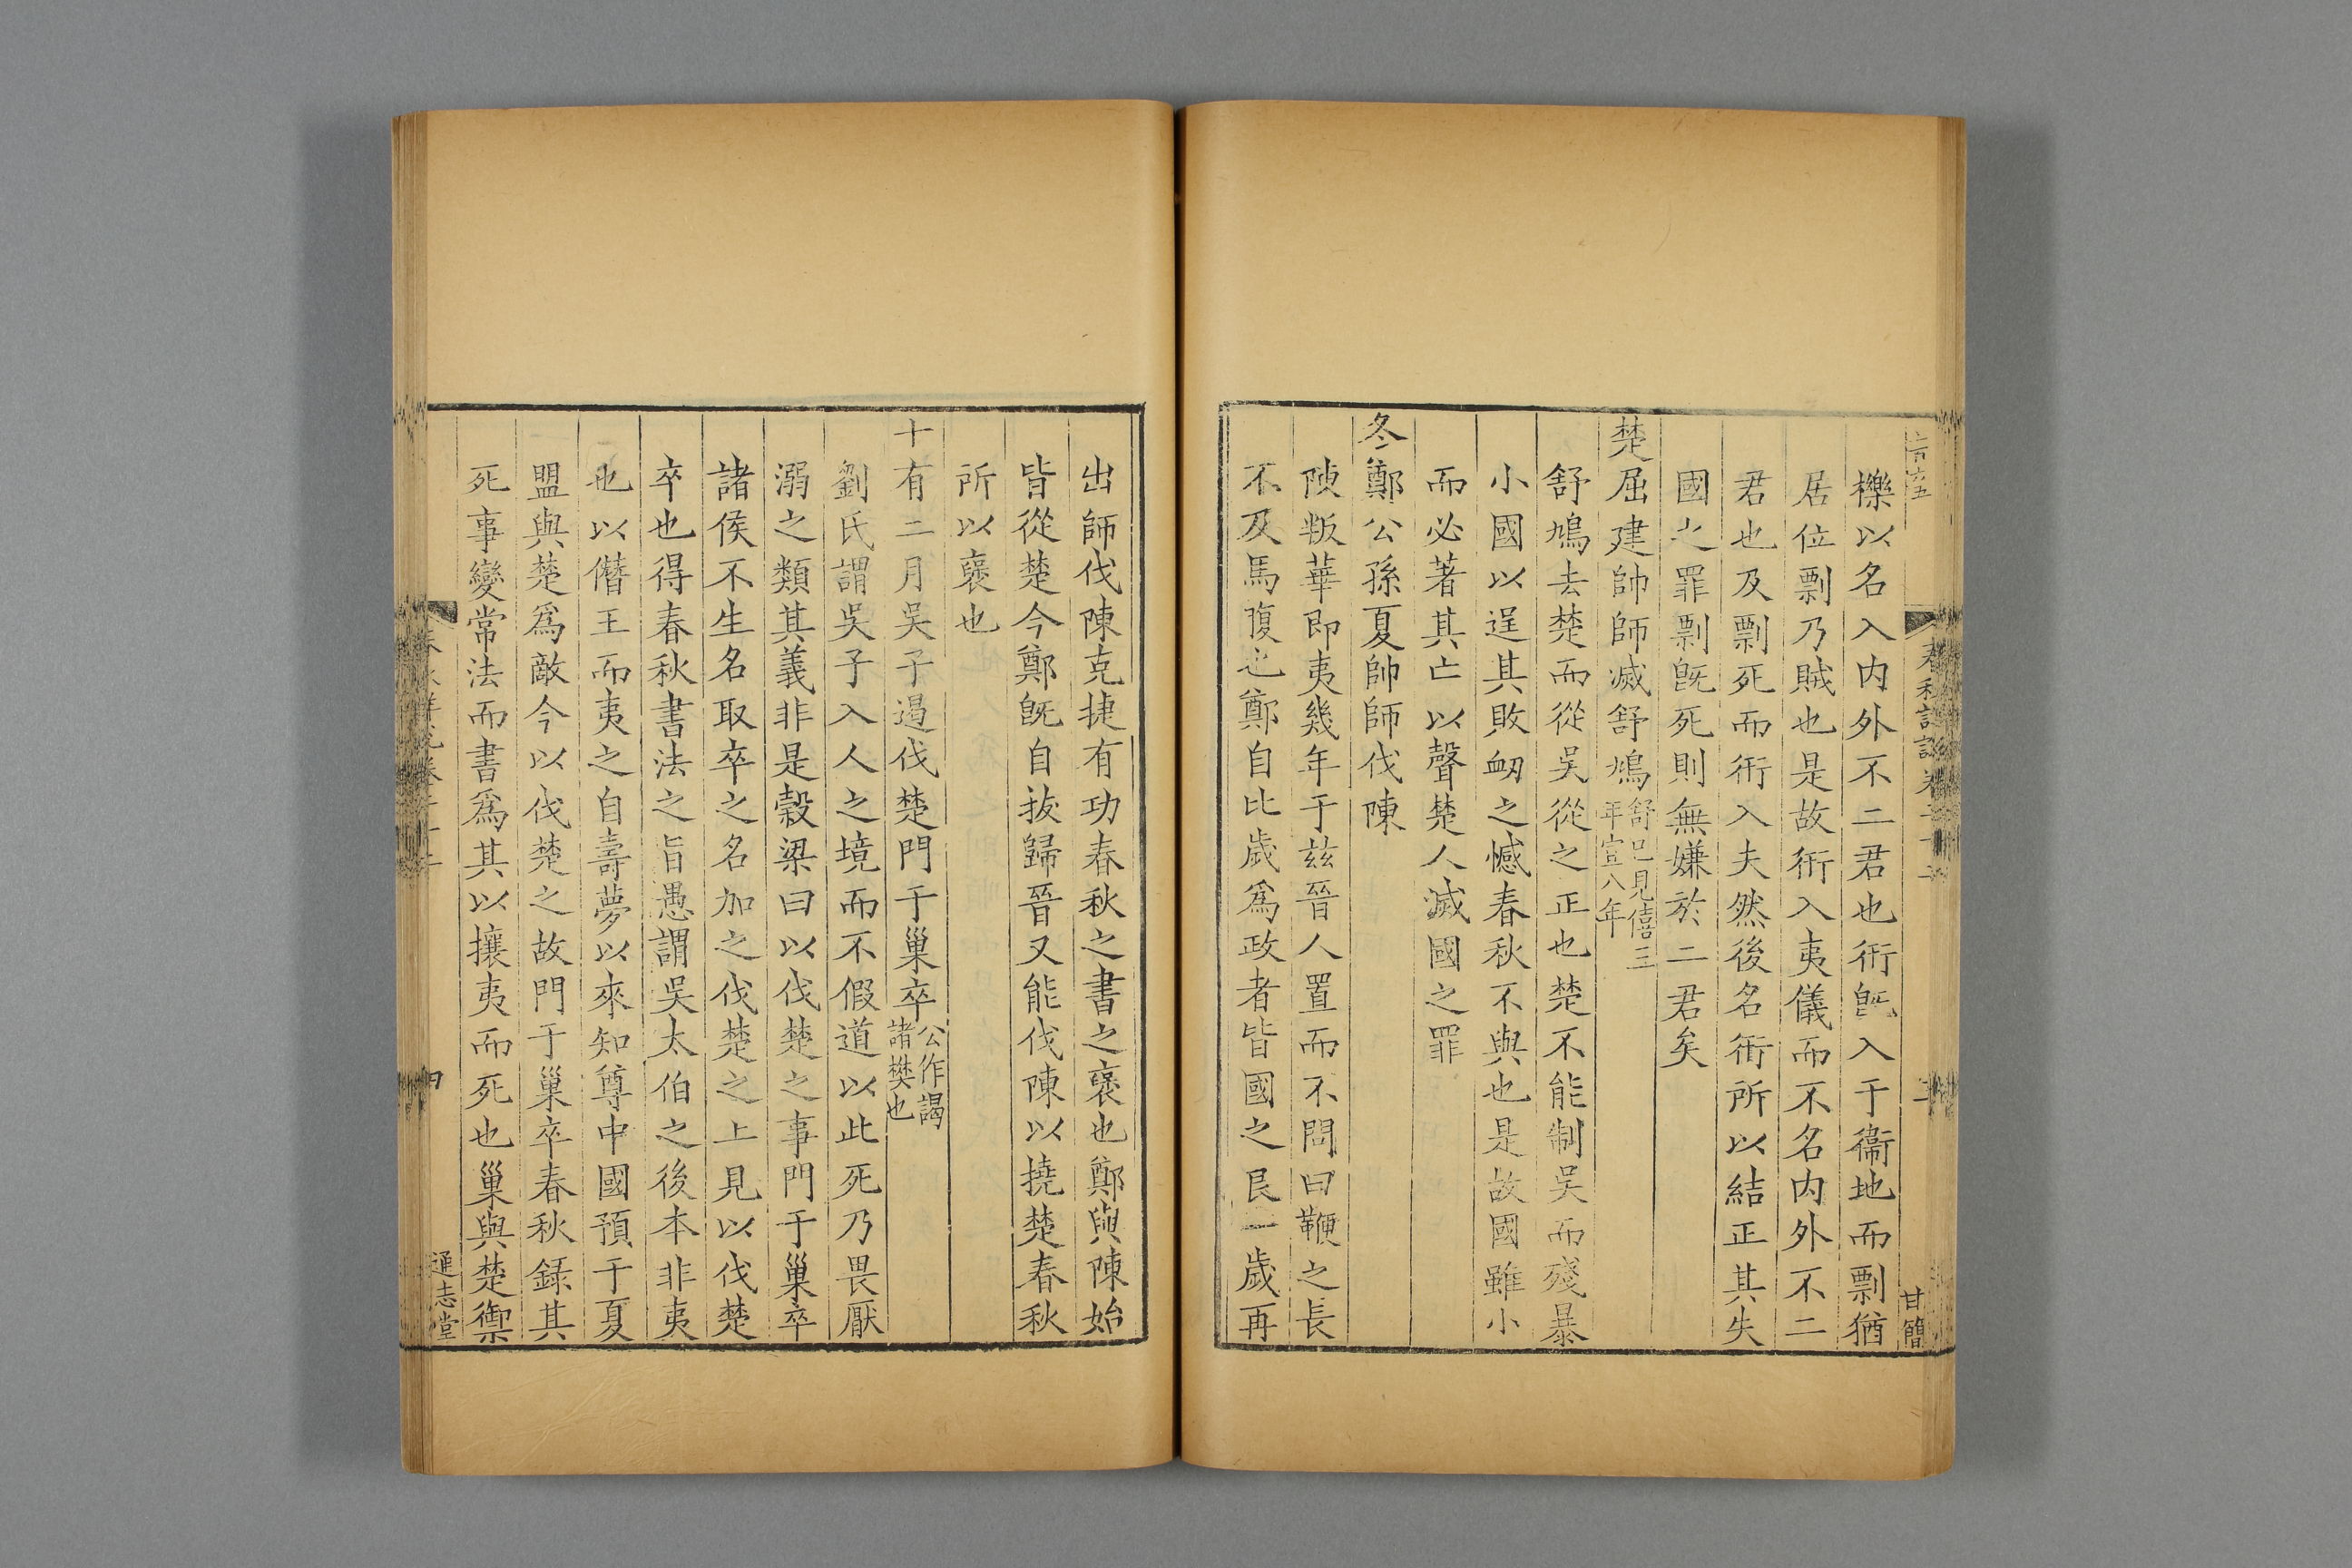 櫟以名入内外不二君也衎旣入于衞地而剽猶
居位剽乃賊也是故衎入夷儀而不名内外不二
君也及剽死而衎入夫然後名衎所以結正其失
國之罪剽旣死則無嫌於二君矣
楚屈建帥師滅舒鳩舒已見僖三年宣八年
舒鳩去楚而從吳從之正也楚不能制吳而殘暴
小國以逞其敗衂之憾春秋不與也是故國雖小
而必著其亡以聲楚人滅國之罪
冬鄭公孫夏帥師伐陳
陳叛華即夷幾年于兹晉人置而不問曰鞭之長
不及馬腹也鄭自比歲爲政者皆國之良一歲再
甘簡
出師伐陳克捷有功春秋之書之襃也鄭與陳始
皆從楚今鄭旣自拔歸晉又能伐陳以撓楚春秋
所以襃也
十有二月吳子遏伐楚門于巢卒公作謁諸樊也
劉氏謂吳子入人之境而不假道以此死乃畏厭
溺之類其義非是穀梁曰以伐楚之事門于巢卒
諸侯不生名取卒之名加之伐楚之上見以伐楚
卒也得春秋書法之旨愚謂吳太伯之後本非夷
也以僭王而夷之自壽夢以來知尊中國預于夏
盟與楚爲敵今以伐楚之故門于巢卒春秋錄其
死事變常法而書爲其以攘夷而死也巢與楚禦
四
通志堂